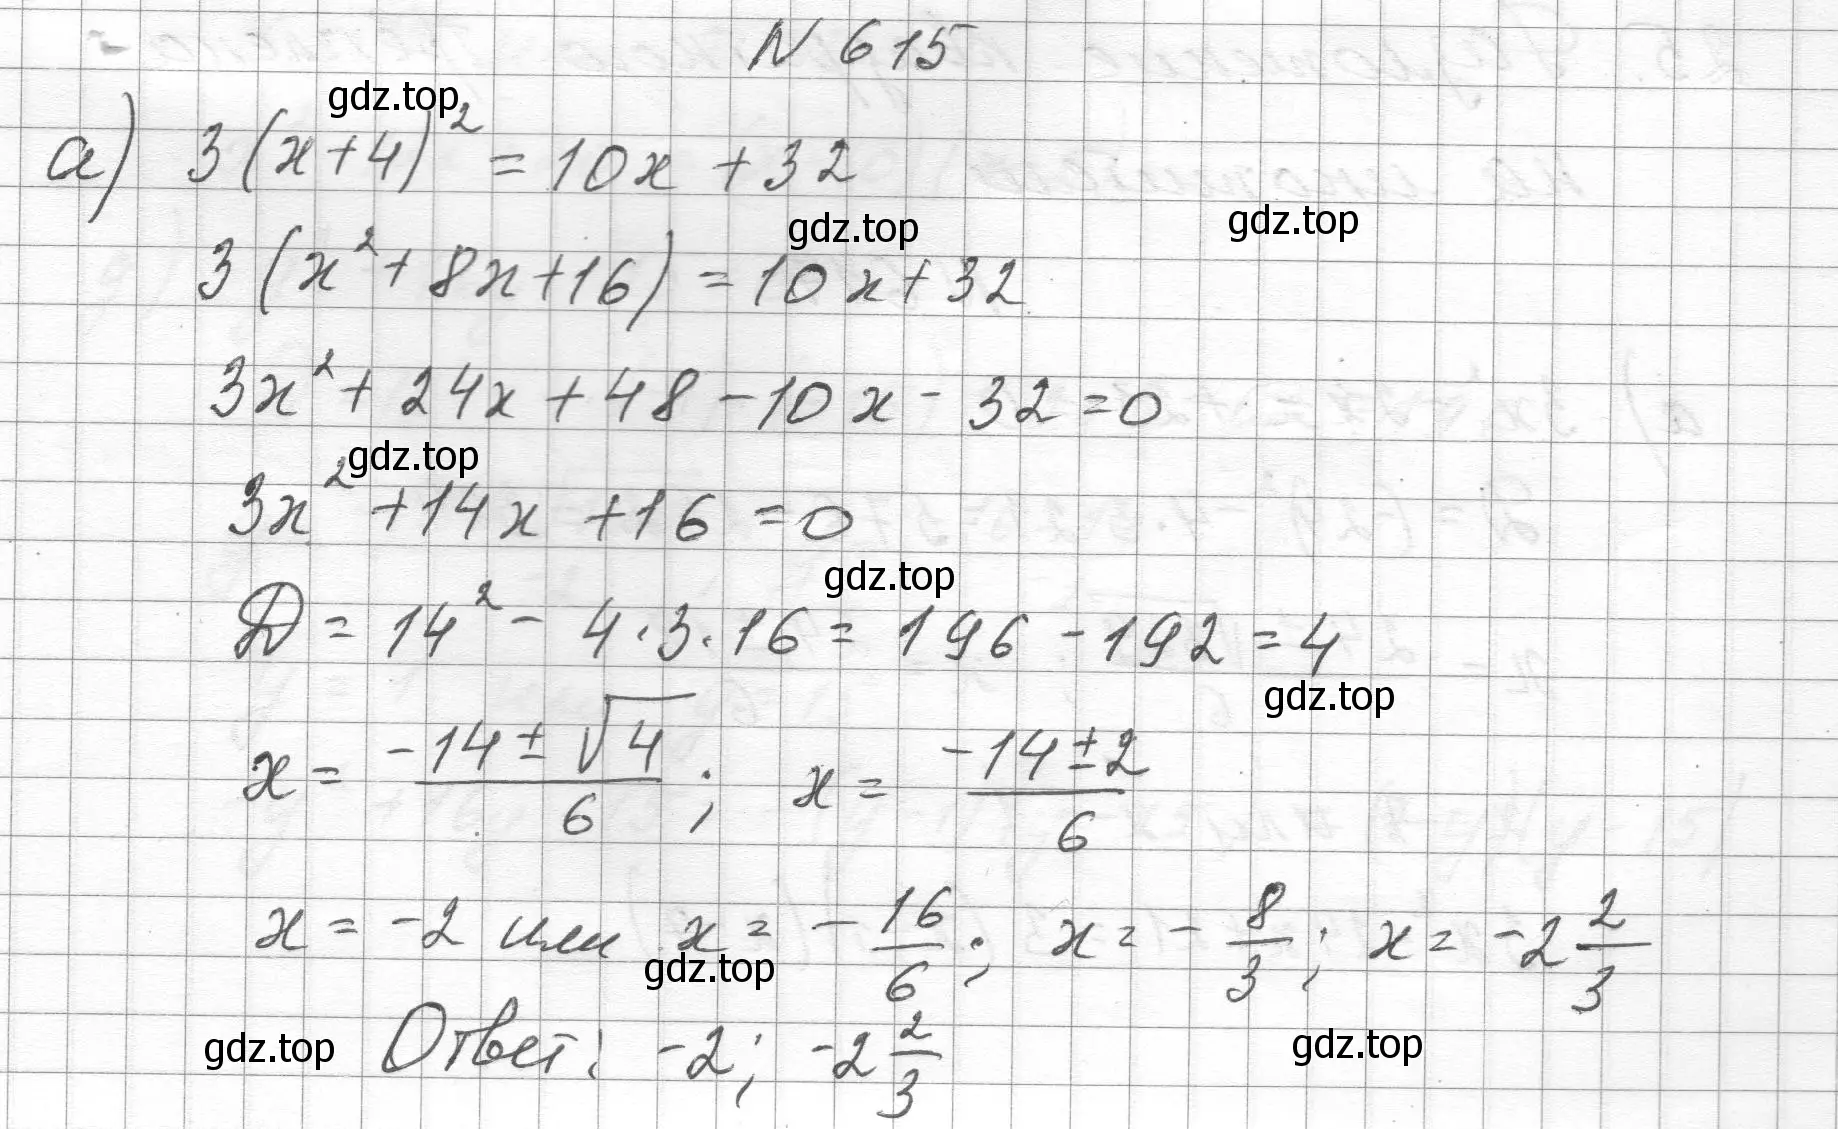 N 615
gdz.top
а) 3(x+4)² = 10x + 32
gdz.top gdz.top
3(x² + 8x + 16) = 10x + 32
3x² + 24x + 48 - 10x - 32 = 0
gdz.top
3x² + 14x + 16 = 0
gdz.top
D = 14² - 4·3·16 = 196 - 192 = 4
gdz.top
x = (-14 ± √4)/6; x = (-14 ± 2)/6
x = -2 или x = -16/6; x = -8/3; x = -2 2/3
gdz.top
gdz.top Ответ: -2; -2 2/3 gdz.top